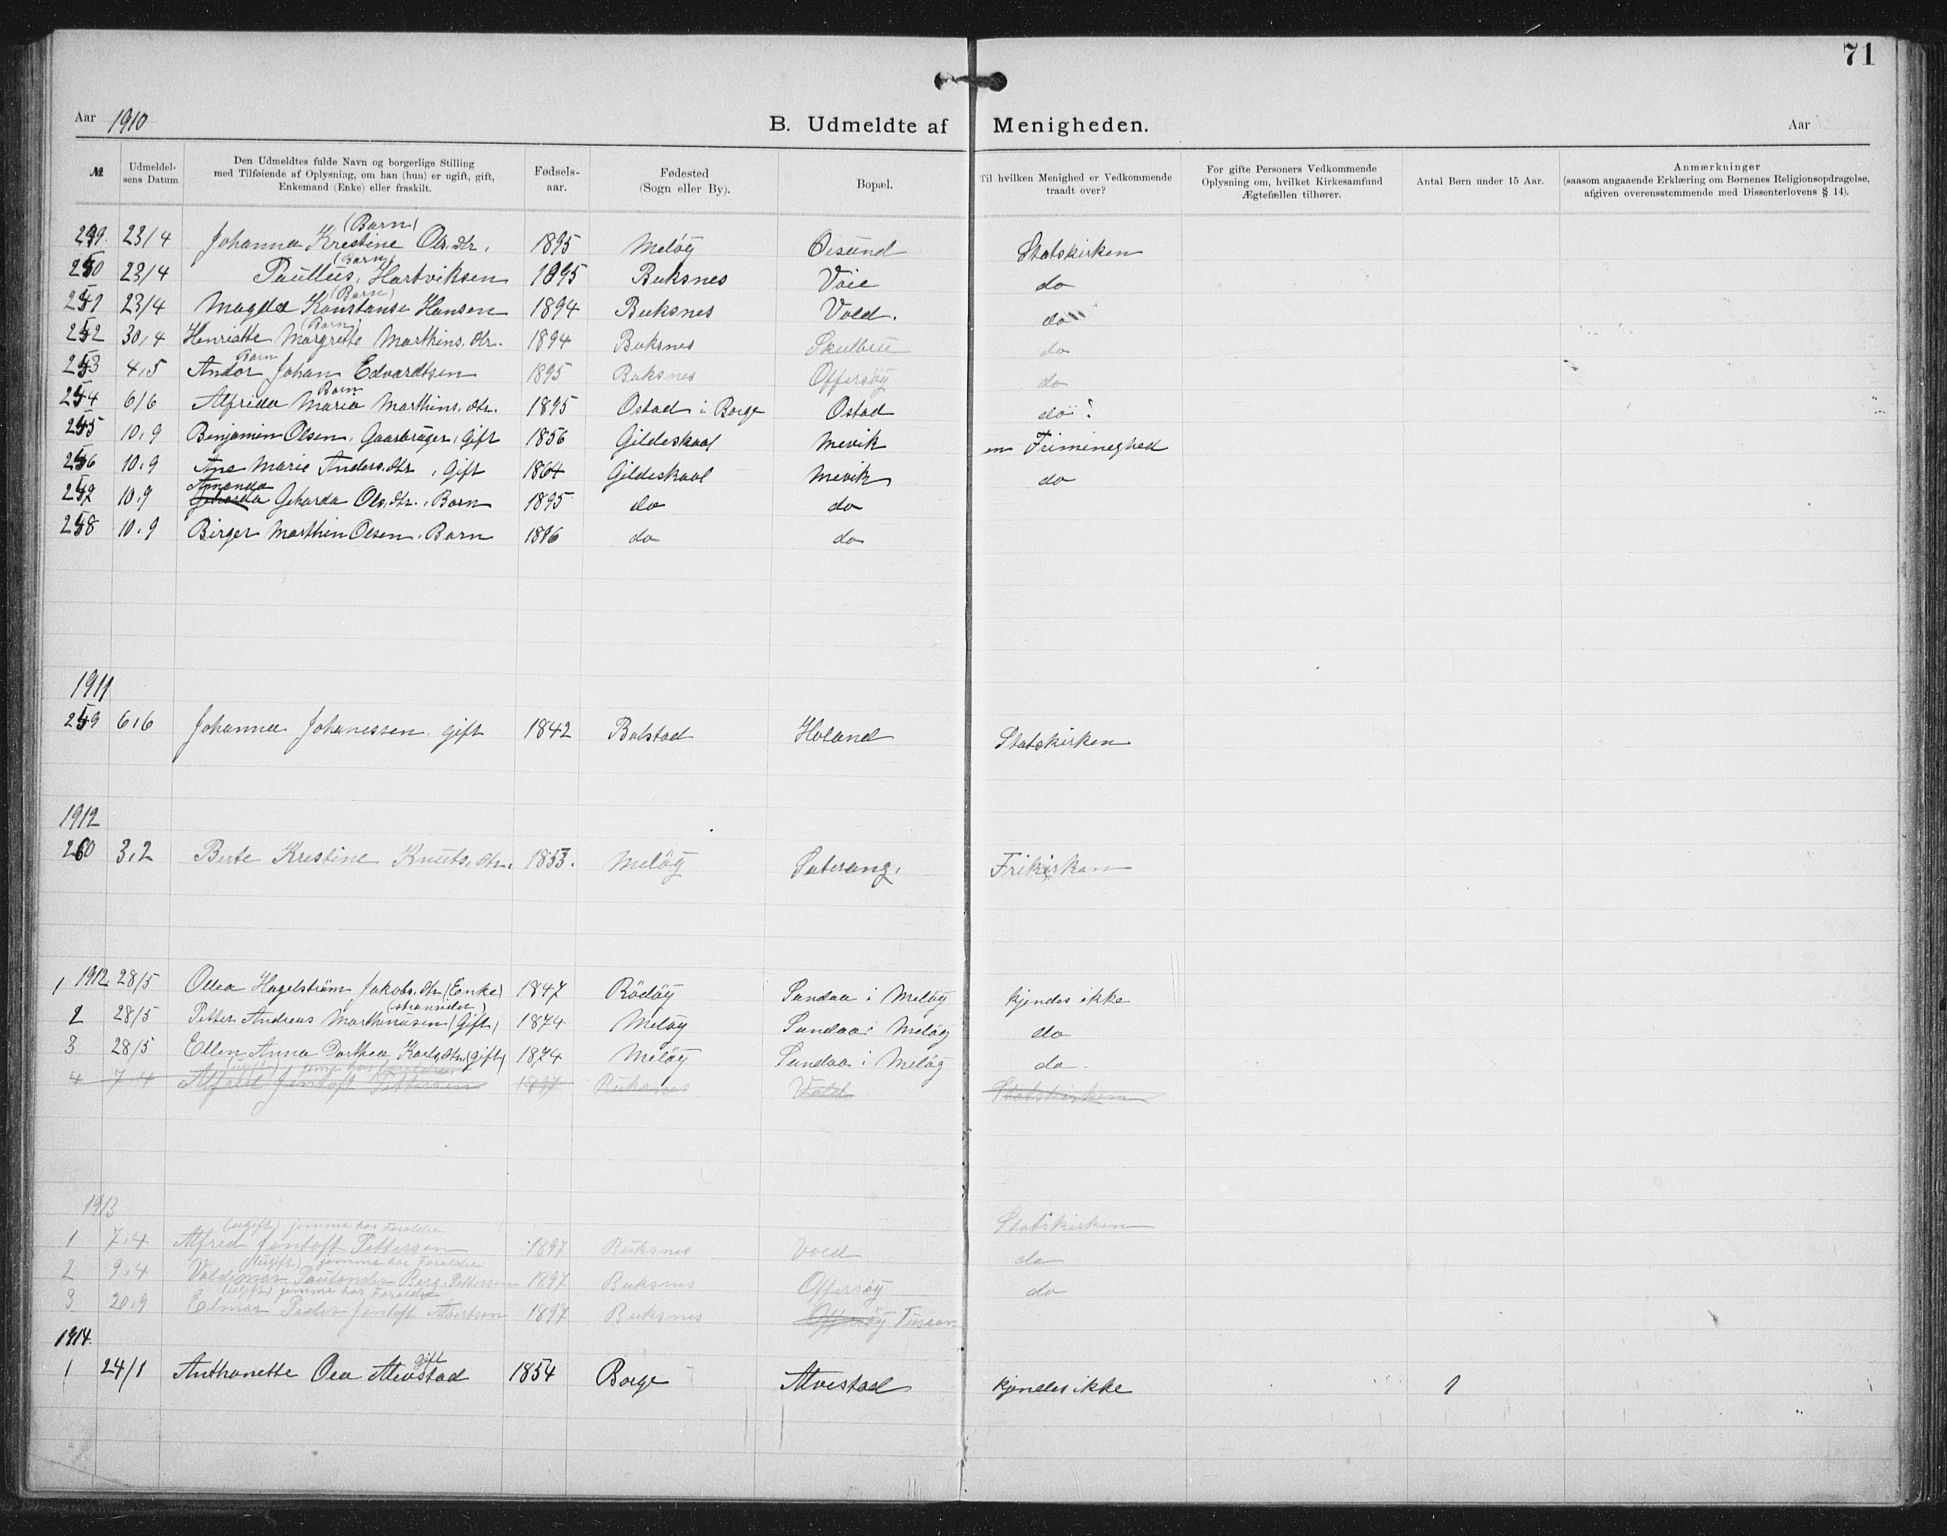 71
Aar 1910 B. Udmeldte af Menigheden. Aar
№ Udmeldelsens Datum. Den Udmeldtes fulde Navn og borgerlige Stilling med Tilføiende af Oplysning, om han (hun) er ugift, gift, Enkemand (Enke) eller fraskilt. Fødselsaar. Fødested (Sogn eller By). Bopæl. Til hvilken Menighed er Vedkommende traadt over? For gifte Personers Vedkommende Oplysning om, hvilket Kirkesamfund Ægtefællen tilhører. Antal Børn under 15 Aar. Anmærkninger (saasom angaaende Erklæring om Børnenes Religionsopdragelse, afgiven overensstemmende med Dissenterlovens § 14).
(Barn)
249. 23/4 Johanna Krestine Ols.dtr. 1895 Meløy Øesund Statskirken
(Barn)
250 23/4 Paulus, Hartviksen 1895 Buksnes Voie do
(Barn)
251 23/4 Magda Konstanse Hansen 1894 Buksnes Vold. do
(Barn)
252 30,4 Henriette Margrette Marthins.dtr. 1894 Buksnes Skulbru do
Barn
253 4,5 Andor Johan Edvardtsen 1895 Buksnes Offersøy do
Barn
254 6/6 Alfrida Maria Marthins.dtr. 1895 Ostad i Borge Ostad do
255 10,9 Benjamin Olsen, Gaarbruger, Gift 1856 Gildeskaal Mevik en Frimineghed
256 10,9 Ane Marie Anders.dtr, Gift 1864 Gildeskaal Mevik do
Amanda
257 10,9 Geharda Geharda Ols.dtr., Barn 1895 do do
258 10,9 Birger Marthin Olsen, Barn 1896 do do
1911
259 6,6 Johanna Johanessen gift 1842 Balstad Holand Statskirken
1912
260 3,2 Berte Krestine Knuts.dtr. 1853. Meløy Saterang. Frikirken
1 1912 28/5 Olea Hagelstrøm Jakobs.dtr (Enke) 1847 Rödöy Sandaa i Meløy kjendes ikke
2 28/5 Petter Andreas Marthinusen (Gift) 1874 Meløy Sandaa i Meløy do
3 28/5 Ellen Anna Dorthea Karls.dtr (gift) 1874 Meløy Sandaa i Meløy do
4 7 4 Alfred Jentoft Pettersen 1897 Buksnes Vold Statskirken
1913
(ugift) jemme hos Foraldre
1 7,4 Alfred Jentoft Pettersen 1897 Buksnes Vold Statskirken
(ugift) jemme hos Foraldre
2 9,4 Valdemar Paulander Berg. Pettersen 1897 Buksnes Offersøy do
(ugift) jemme hos Foraldre
3 20,9 Elmar Peder Jentoft Albertsen 1897 Buksnes Offersøy do
1914.
gift
1 24/1 Anthonette Oea Alvestad 1854 Borge Alvestad kjendes ikke 1